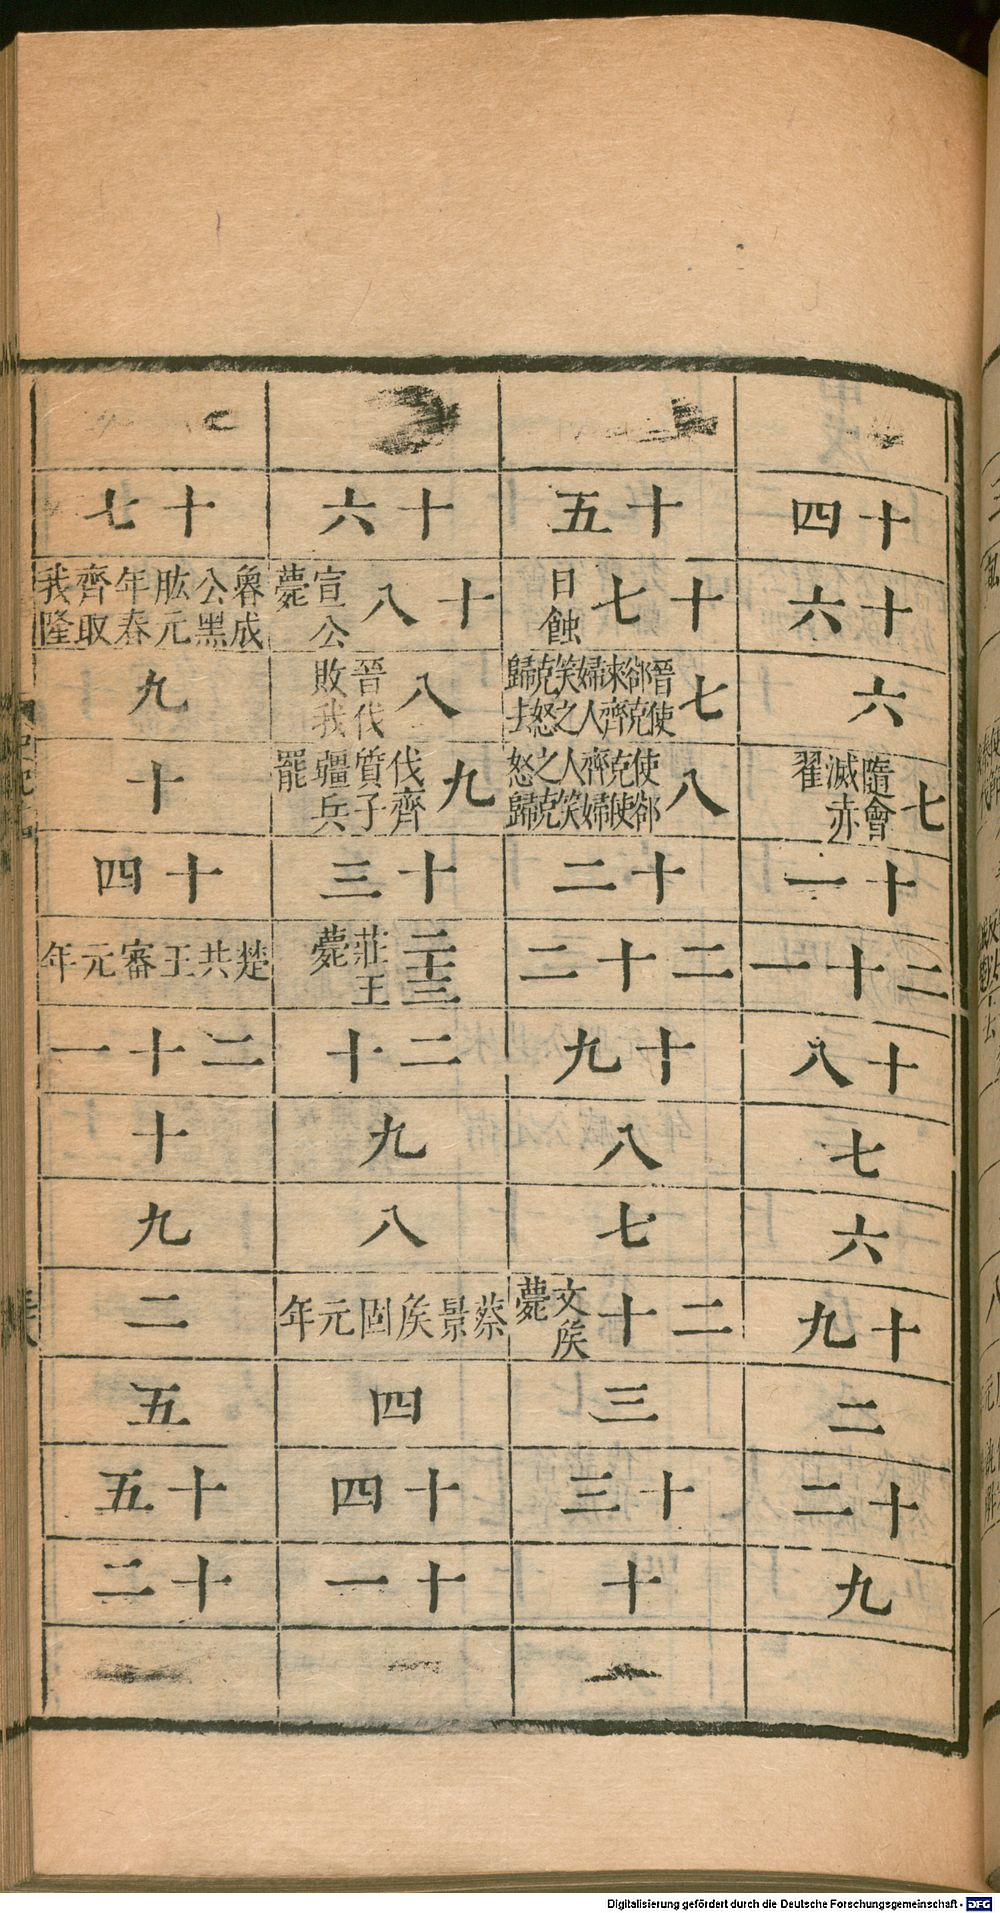 十四
十六
六
七 隨會滅赤翟
十一
二十一
十八
七
六
十九
二
十二
九
十五
十七 日蝕
七 晉使郤克來齊婦人笑之克怒歸去
八 使郤克使齊婦人笑之克怒歸
十二
二十二
十九
八
七
二十 文矦薨
三
十三
十
十六
十八 宣公薨
八 晉伐敗我
九 伐齊質子疆兵罷
十三
二十三 莊王薨
二十
九
八
蔡景矦固元年
四
十四
十一
十七
魯成公黑肱元年春齊取我隆
九
十
十四
楚共王審元年
二十一
十
九
二
五
十五
十二
Digitalisierung gefördert durch die Deutsche Forschungsgemeinschaft - DFG